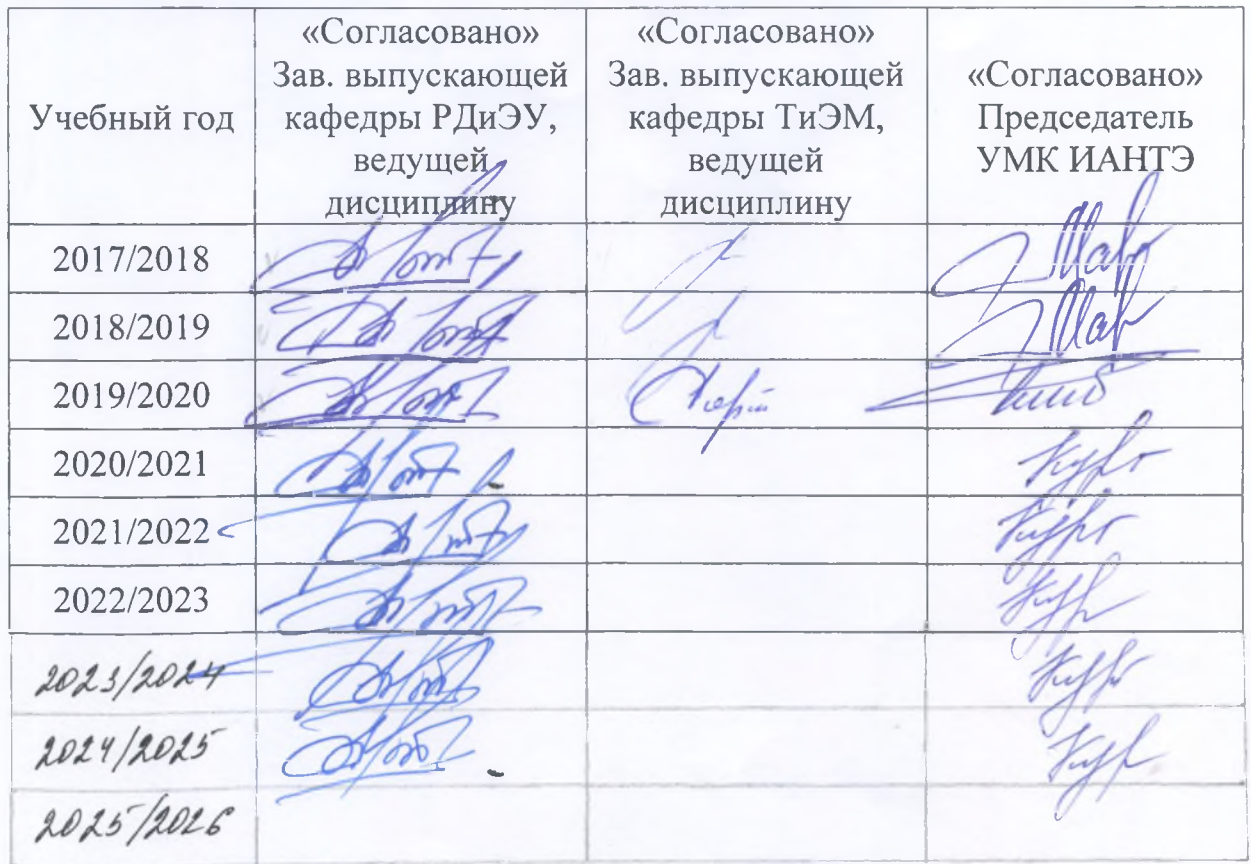 Учебный год
«Согласовано»
Зав. выпускающей
кафедры РДиЭУ,
ведущей
дисциплину
«Согласовано»
Зав. выпускающей
кафедры ТиЭМ,
ведущей
дисциплину
«Согласовано»
Председатель
УМК ИАНТЭ
2017/2018
2018/2019
2019/2020
2020/2021
2021/2022
2022/2023
2023/2024
2024/2025
2025/2026